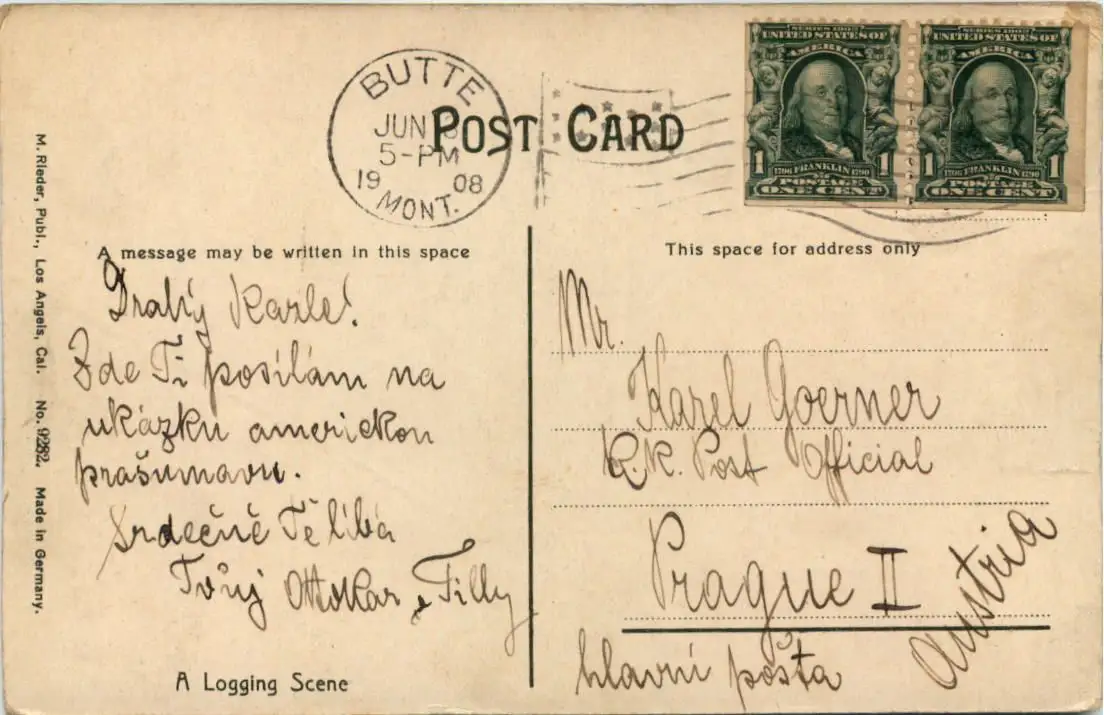 BUTTE
JUN
5-PM
19 08
MONT.
POST CARD
SERIES 1902
UNITED STATES OF
AMERICA
1 1
1706 FRANKLIN 1790
POSTAGE
ONE CENT
SERIES 1902
UNITED STATES OF
AMERICA
1 1
1706 FRANKLIN 1790
POSTAGE
ONE CENT
M. Rieder, Publ., Los Angels, Cal. No. 9282. Made in Germany.
A message may be written in this space
Drahý Karle!
Zde Ti posílám na
ukázku americkou
prašumavu.
Srdečně Tě líbá
Tvůj Ottokar a Tilly
A Logging Scene
This space for address only
Mr.
Karel Goerner
K.K. Post Official
Prague II
Austria
hlavní pošta